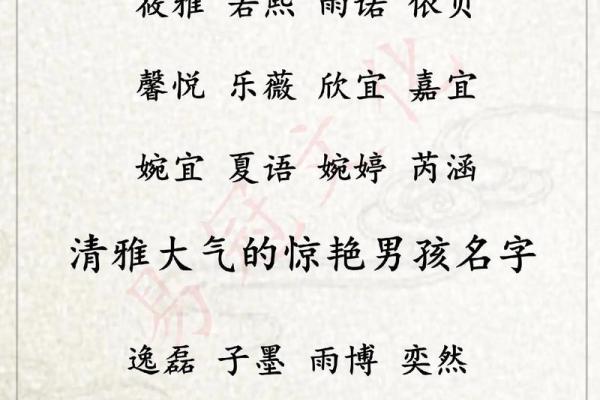 筱雅 若熙 雨诺 依贝
馨悦 乐薇 欣宜 嘉宜
婉宜 夏语 婉婷 芮涵
清雅大气的惊艳男孩名字
逸磊 子墨 雨博 奕然